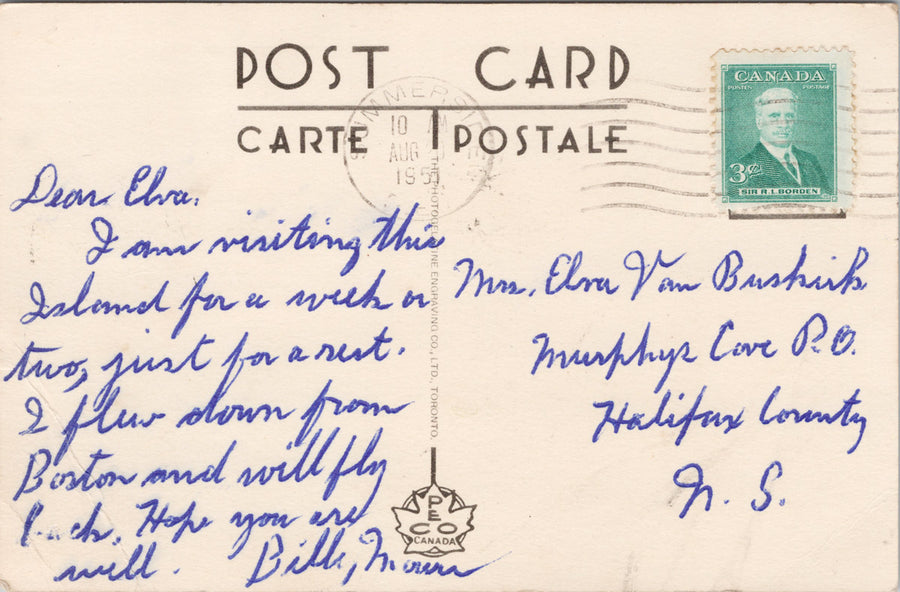 POST CARD
CARTE POSTALE
CANADA
POSTES POSTAGE
3¢
SIR R.L. BORDEN
SUMMERSIDE
10 AM
AUG
195
Dear Elva,
I am visiting this
Island for a week or
two, just for a rest.
I flew down from
Boston and will fly
back. Hope you are
well. Bill,
Mrs. Elva Van Buskirk
Murphys Cove P.O.
Halifax County
N. S.
THE PHOTOGELATINE ENGRAVING CO., LTD., TORONTO.
PECO
CANADA